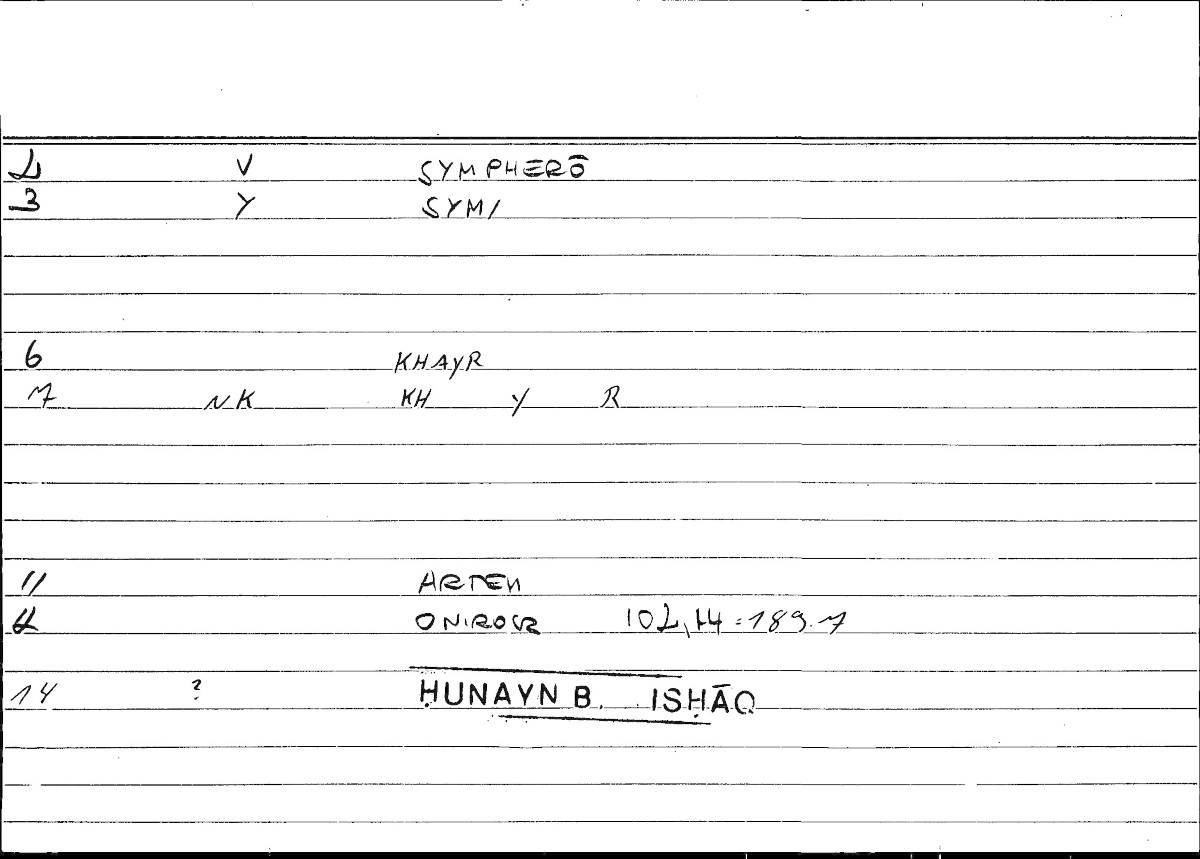 2 V SYMPHERŌ
3 Y SYM/
6 KHAYR
7 NK KH Y R
11 ARTEM
12 ONIROCR 102,14=189.7
14 ? ḤUNAYN B. ISḤĀQ